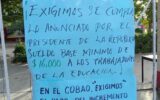 ¡EXIGIMOS SE CUMPLA
LO ANUNCIADO POR EL
PRESIDENTE DE LA REPÚBLICA
SUELDO BASE MÍNIMO DE
$16,000 A LOS TRABAJADORES
DE LA EDUCACIÓN!
EN EL COBAO, EXIGIMOS
INCREMENTO